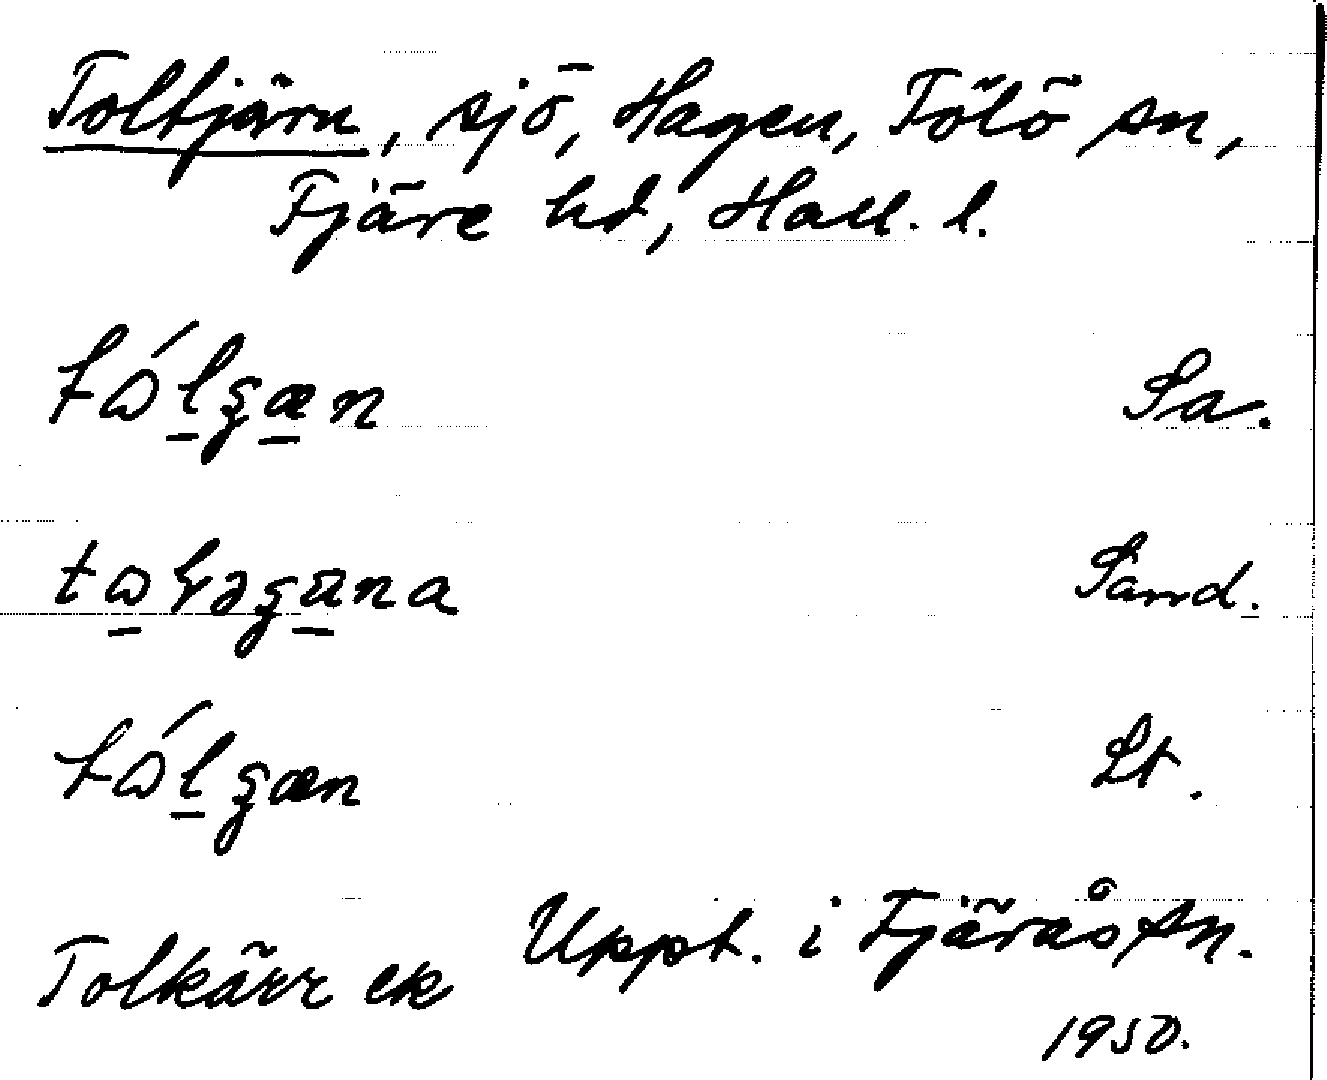 Toltjärn, sjö, Hagen, Tölö sn,
Fjäre hd, Hall. l.
tɷ́lʒæn Sa.
tɷⱡəʒäna Sand.
tɷ́lʒæn Lt.
Tolkärr ek Uppt. i Fjärås sn.
1950.